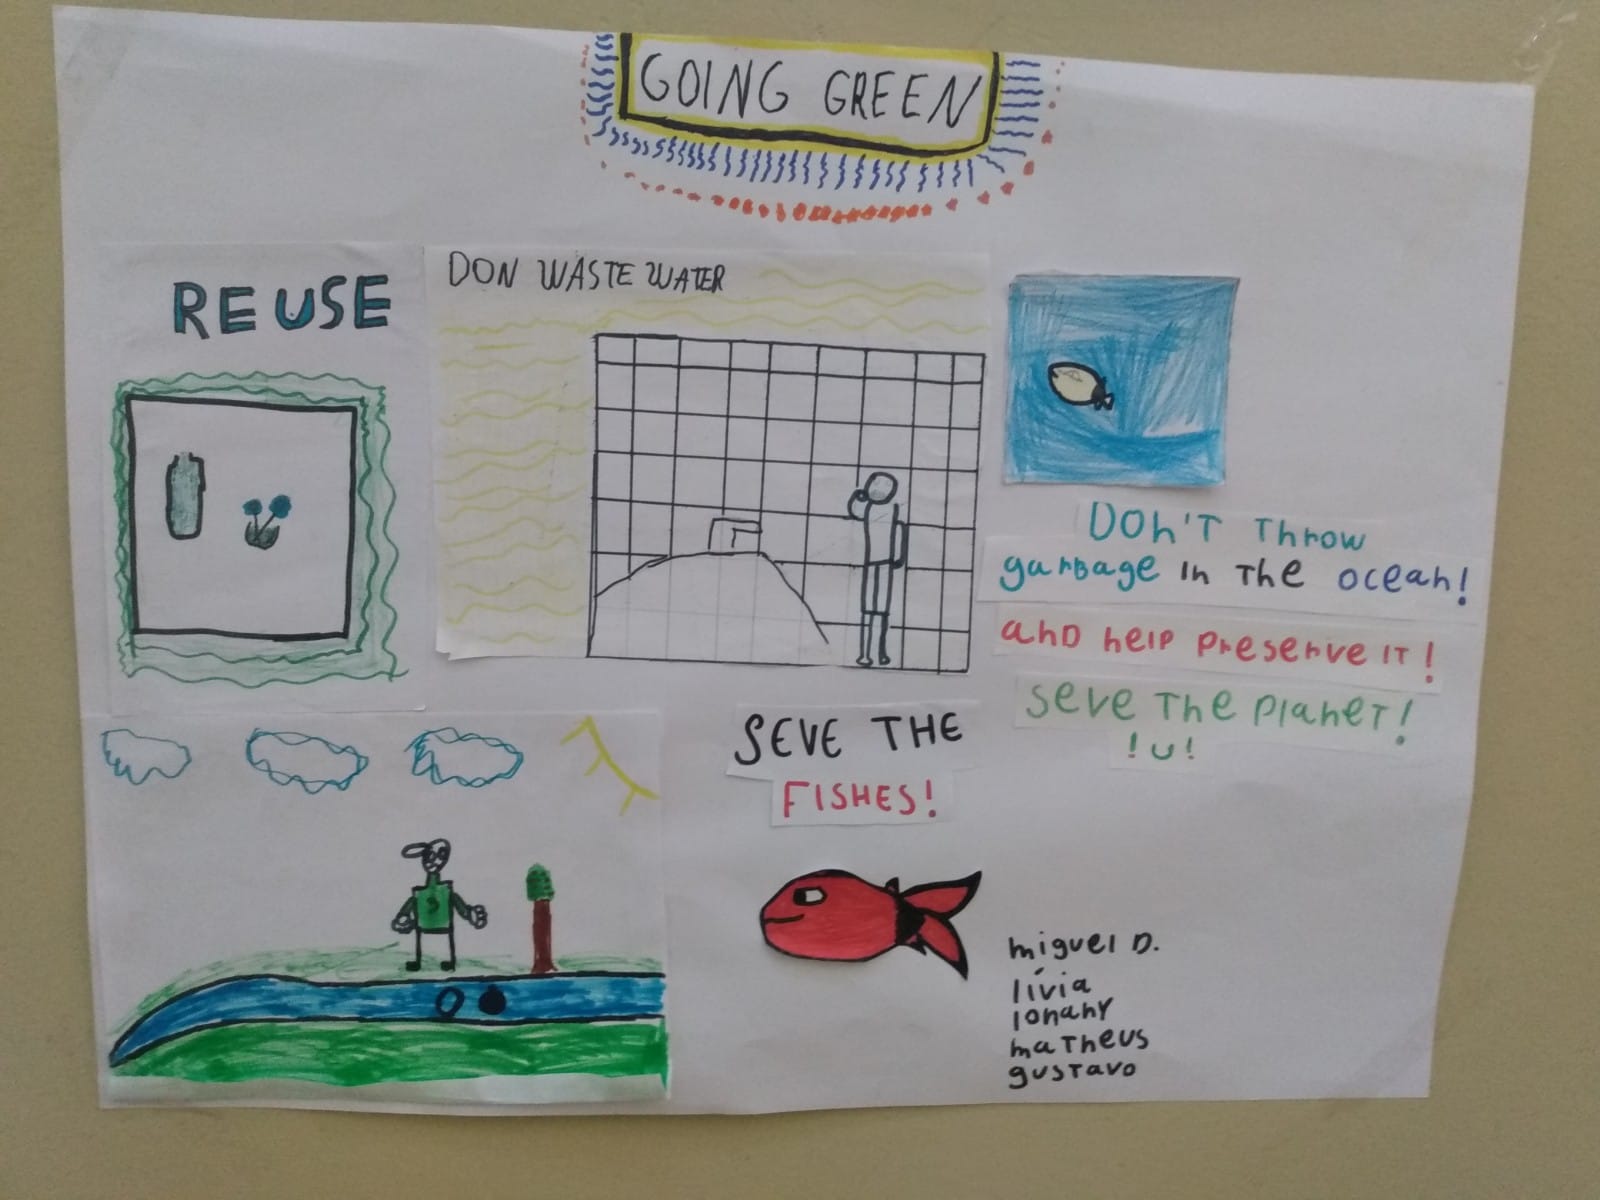 GOING GREEN
REUSE
DON WASTE WATER
DON'T THROW
garbage in the ocean!
and help preserve it!
seve the planet!
! U !
SEVE THE
FISHES!
miguel D.
lívia
ionany
matheus
gustavo